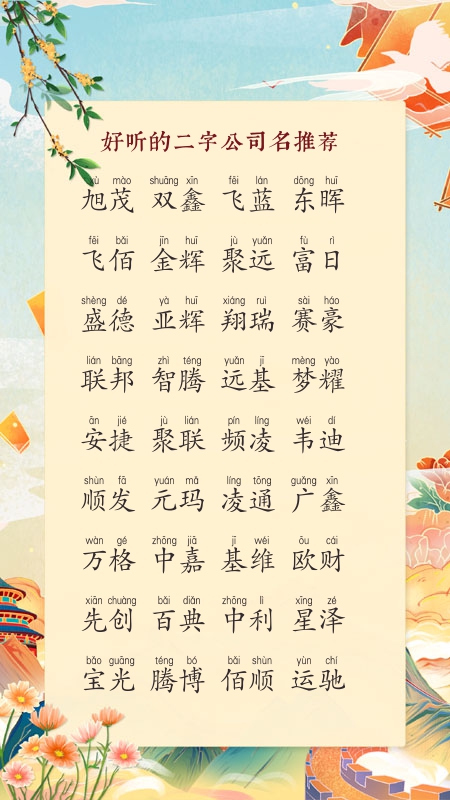 好听的二字公司名推荐
xù mào shuāng xīn fēi lán dōng huī
旭茂 双鑫 飞蓝 东晖
fēi bǎi jīn huī jù yuǎn fù rì
飞佰 金辉 聚远 富日
shèng dé yà huī xiáng ruì sài háo
盛德 亚辉 翔瑞 赛豪
lián bāng zhì téng yuǎn jī mèng yào
联邦 智腾 远基 梦耀
ān jié jù lián pín líng wéi dí
安捷 聚联 频凌 韦迪
shùn fā yuán mǎ líng tōng guǎng xīn
顺发 元玛 凌通 广鑫
wàn gé zhōng jiā jī wéi ōu cái
万格 中嘉 基维 欧财
xiān chuàng bǎi diǎn zhōng lì xīng zé
先创 百典 中利 星泽
bǎo guāng téng bó bǎi shùn yùn chí
宝光 腾博 佰顺 运驰